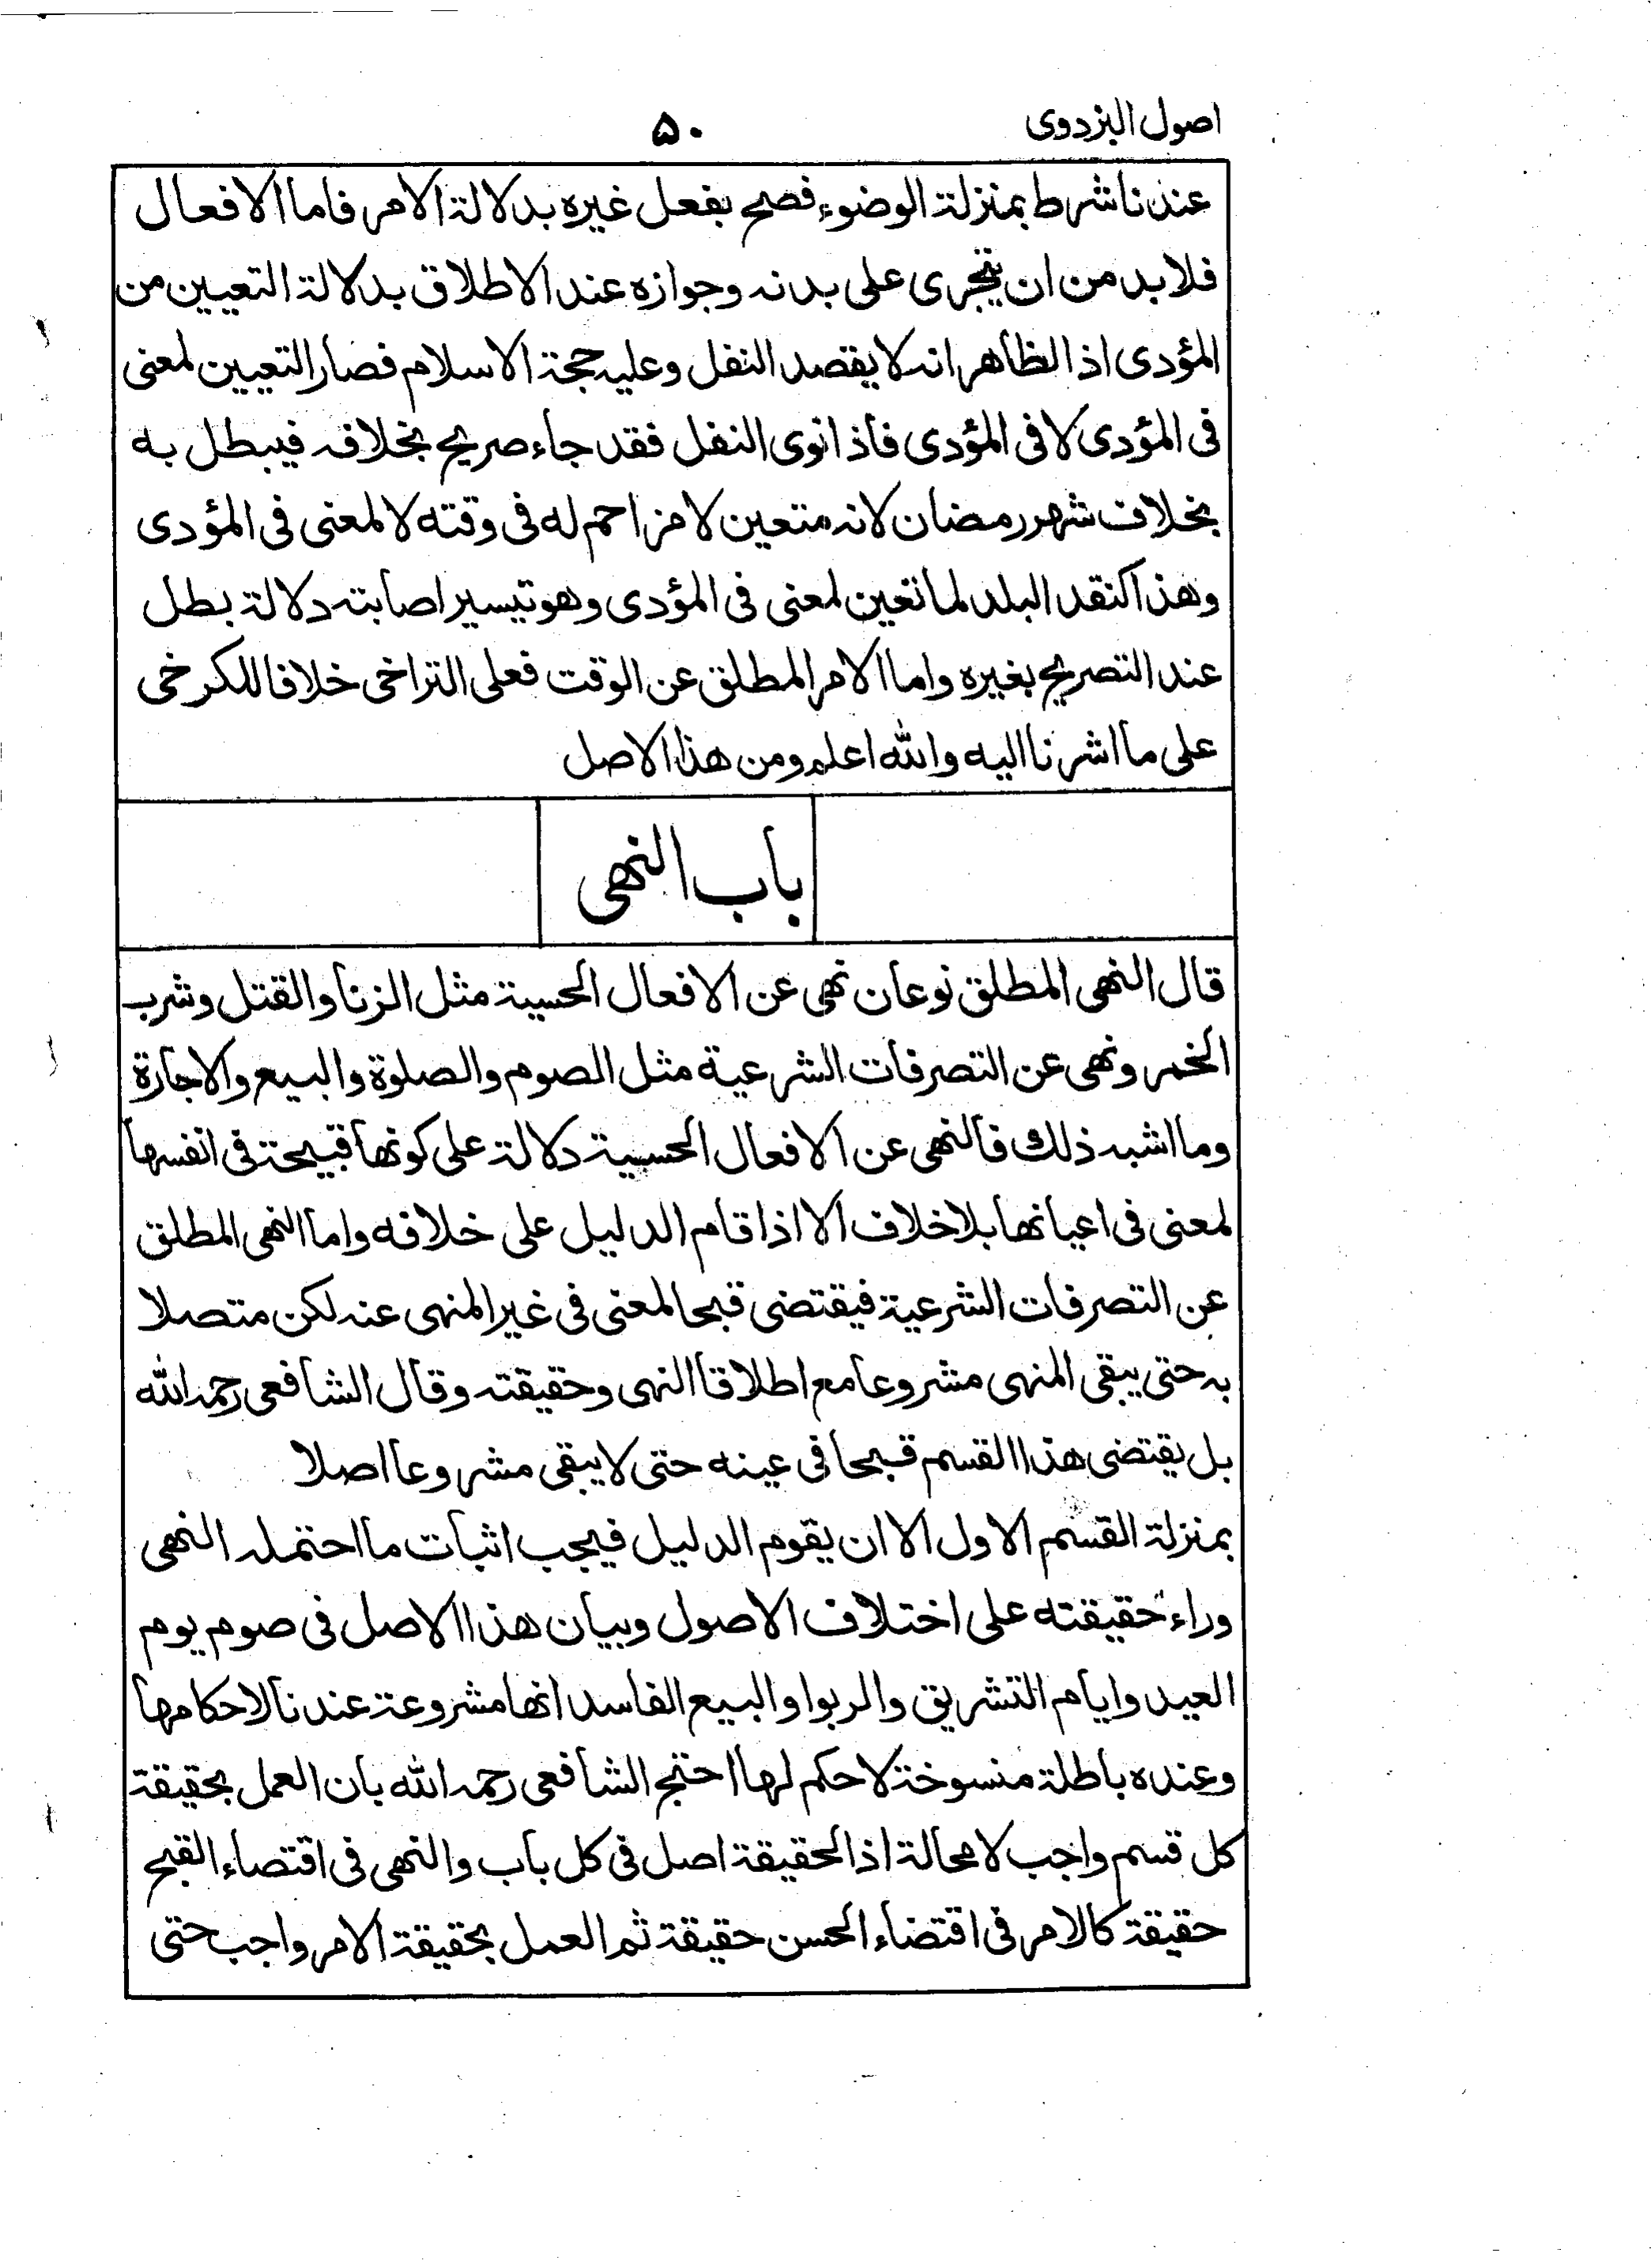 اصول البزدوی
۵۰
عندنا شرط بمنزلة الوضوء فصح بفعل غيره بدلالة الامر فاما الافعال
فلا بد من ان يجرى على بدنه وجوازه عند الاطلاق بدلالة التعيين من
المؤدى اذ الظاهر انه لا يقصد النفل وعليه حجة الاسلام فصار التعيين لمعنى
فى المؤدى لا فى المؤدى فاذا نوى النفل فقد جاء صريح بخلافه فيبطل به
بخلاف شهر رمضان لانه متعين لا مزاحم له فى وقته لا لمعنى فى المؤدى
وهذا كنقد البلد لما تعين لمعنى فى المؤدى وهو تيسير اصابته دلالة بطل
عند التصريح بغيره واما الامر المطلق عن الوقت فعلى التراخى خلافا للكرخى
على ما اشرنا اليه والله اعلم ومن هذا الاصل
باب النهى
قال النهى المطلق نوعان نهى عن الافعال الحسية مثل الزنا والقتل وشرب
الخمر ونهى عن التصرفات الشرعية مثل الصوم والصلوة والبيع والاجارة
وما اشبه ذلك فالنهى عن الافعال الحسية دلالة على كونها قبيحة فى انفسها
لمعنى فى اعيانها بلا خلاف الا اذا قام الدليل على خلافه واما النهى المطلق
عن التصرفات الشرعية فيقتضى قبحا لمعنى فى غير المنهى عنه لكن متصلا
به حتى يبقى المنهى مشروعا مع اطلاقا النهى وحقيقته وقال الشافعى رحمه الله
بل يقتضى هذا القسم قبحا فى عينه حتى لا يبقى مشروعا اصلا
بمنزلة القسم الاول الا ان يقوم الدليل فيجب اثبات ما احتمله النهى
وراء حقيقته على اختلاف الاصول وبيان هذا الاصل فى صوم يوم
العيد وايام التشريق والربوا والبيع الفاسد انها مشروعة عندنا لاحكامها
وعنده باطلة منسوخة لا حكم لها احتج الشافعى رحمه الله بان العمل بحقيقة
كل قسم واجب لا محالة اذ الحقيقة اصل فى كل باب والنهى فى اقتصاء القبح
حقيقة كالامر فى اقتضاء الحسن حقيقة ثم العمل بحقيقة الامر واجب حتى